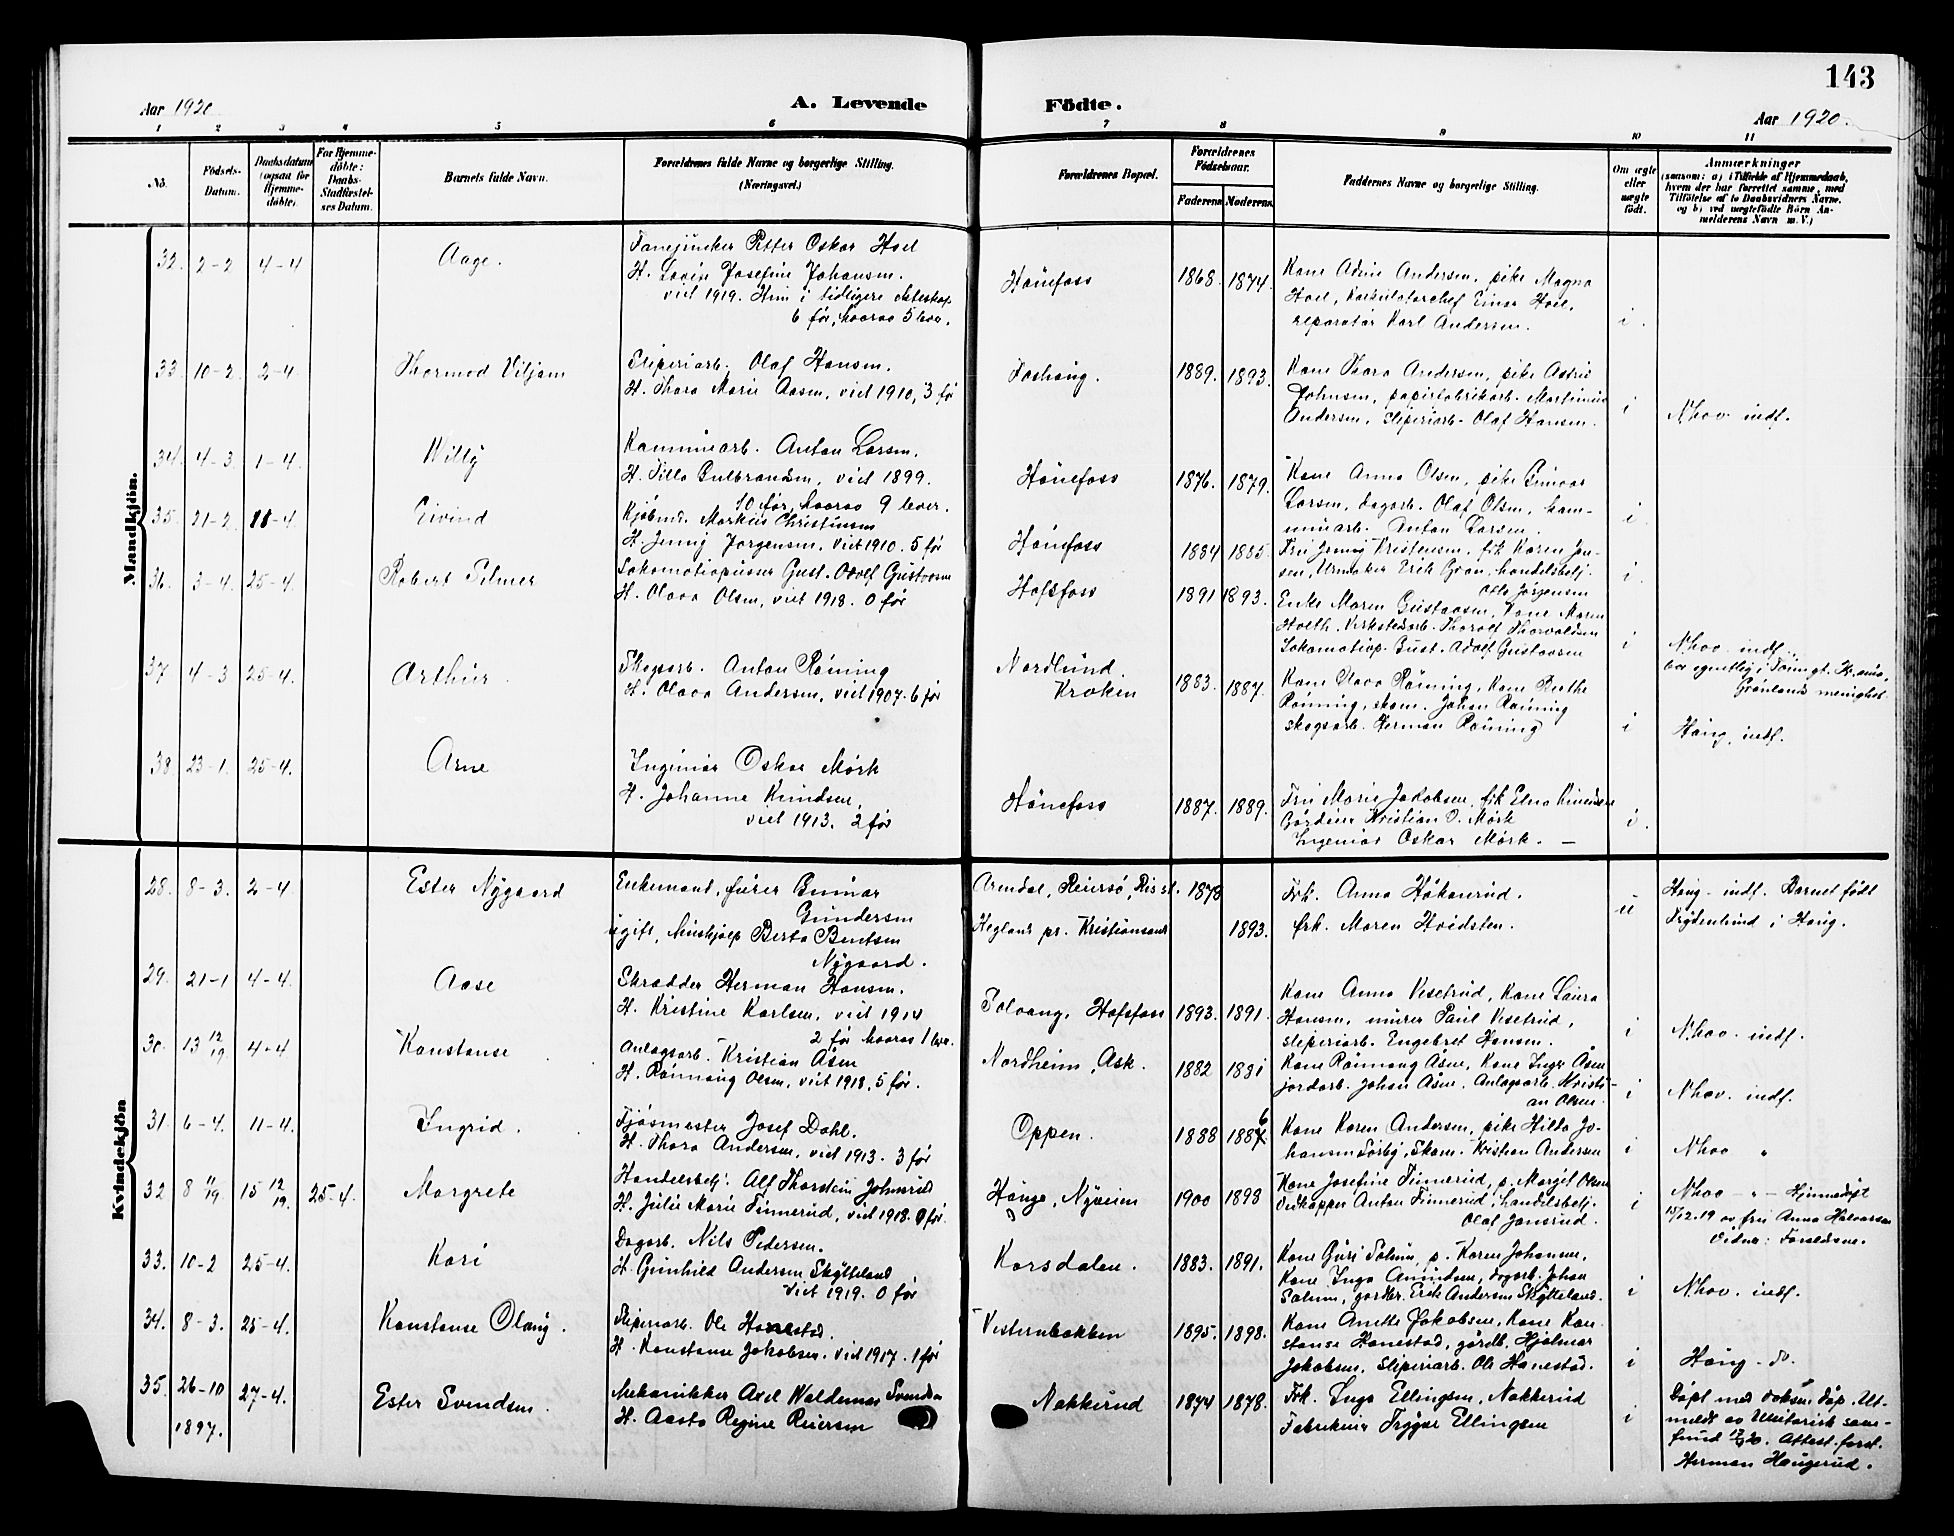 143
Aar 1920.
A. Levende
Födte.
Aar 1920.
1 2 3 4 5 6 7 8 9 10 11
No.
Födsels-
Datum.
Daabsdatum
(ogsaa for
Hjemme-
döbte)
For Hjemme-
döbte:
Daabs-
Stadfæstel-
ses Datum.
Barnets fulde Navn.
Forældrenes fulde Navne og borgerlige Stilling.
(Næringsvei.)
Forældrenes Bopæl.
Forældrenes
Födselsaar.
Faderens Moderens
Faddernes Navne og borgerlige Stilling.
Om ægte
eller
uægte
født.
Anmærkninger
(saasom: a) i Tilfælde af Hjemmedaab,
hvem der har forrettet samme, med
Tilföielse af to Daabsvidners Navne.
og b) ved uægtefødte Börn An-
melderens Navn m. V.)
Mandkjön.
32. 2-2 4-4 Aage.
Petter Oskar Hoel
H. Lovise Josefine Johansen.
viet 1919. Hun i tidligere ekteskap
6 før, hvorav 5 lever.
Hønefoss 1868. 1874.
Kone Andersen, pike Magna
Hoel, Einar Hoel,
reparatør Karl Andersen. i.
33. 10-2. 2-4. Thormod Viljam
Sliperiarb. Olaf Hansen.
H. Thora Marie Aasen, viet 1910, 3 før
Foshaug. 1889. 1893.
Kone Thora Andersen, pike Astrid
Johnsen, papirfabrikarb. Martinius
Andersen, Sliperiarb. Olaf Hansen. i
N.hov. indf.
34. 4-3. 1-4. Willy
Kommunearb. Anton Larsen.
H. Tilla Gulbrandsen, viet 1899.
10 før, hvorav 9 lever.
Hønefoss 1876. 1879.
Kone Anna Olsen, pike Gunvor
Larsen, dagarb. Olaf Olsen, kom-
munearb. Anton Larsen. i.
35. 21-2. 11-4. Eivind
Kjøbmd. Markus Christensen
H. Jenny Jørgensen, viet 1910. 5 før
Hønefoss 1884 1885.
Fru Jenny Kristensen, frk Karen Jen-
sen, Urmaker Erik Gran, handelsbetj.
Otto Jørgensen i.
36. 3-4. 25-4. Robert Selmer
Lokomotivpusser Gust. Adolf Gustavsen
H. Olava Olsen, viet 1918. 0 før
Hofsfoss 1891 1893.
Enke Maren Gustavsen, Kone Maren
Holth, Verkstedsarb. Thorolf Thorvaldsen
Lokomotivp. Gust. Adolf Gustavsen i
N.hov. indf.,
bor egentlig i gt. Kr.ania,
Grønlands menighet.
37 4-3 25-4. Arthur.
Skogsarb. Anton Rønning
H. Olava Andersen, viet 1907. 6 før
Nordlund.
Kroken 1883. 1887.
Kone Olava Rønning, Kone Ruthe
Rønning, skom. Johan Rønning
skogsarb. Herman Rønning i
Haug, indf.
38 23-1. 25-4. Arne
Ingeniør Oskar Mørk
H. Johanne Knudsen,
viet 1913. 2 før
Hønefoss 1887. 1889.
Fru Marie Jakobsen, frk Edna Knudsen
Gårdeier Kristian O. Mørk
Ingeniør Oskar Mørk. — i.
Kvindekjön
28. 8-3. 2-4. Ester Nygaard
Enkemand, furer Gunnar
Gundersen
ugift, hushjelp Berta Bentsen
Nygaard.
Arendal, Reiersø, Ris st. 1878
Hegland pr. Kristiansand 1893.
Frk. Anna Håkonrud.
Frk. Maren Hvidsten. u
Haug - indf. Barnet født
Frydenlund i Haug.
29. 21-1 4-4. Aase
Skrædder Herman Hansen.
H. Kristine Karlsen, viet 1914
2 før hvorav 1 lever.
Solvang, Hofsfoss 1893. 1891.
Kone Anna Vesetrud, Kone Laura
Hansen, murer Paul Vesetrud,
sliperiarb. Engebret Hansen. i
N.hov. indf.
30. 13 12/19. 4-4 Konstanse
Anlagsarb. Kristian Åsen
H. Rønnaug Olsen, viet 1918, 5 før.
Nordheim, Ask. 1882 1881
Kone Rønnaug Åsen, Kone Inger Åsen
jordarb. Johan Åsen. Anlagsarb. Kristi-
an Olsen. i
N.hov. indf.
31. 6-4. 11-4. Ingrid.
Fjøsmester Josef Dahl.
H. Thora Andersen, viet 1913. 3 før
Oppen. 1888 1886
Kone Karen Andersen, pike Hilda Jo-
hansen Sørby, Skom. Kristian Andersen i
N.hov "
32 8 11/19. 15 12/19. 25-4. Margrete
Handelsbetj. Alf Thorstein Johnsrud
H. Julie Marie Finnerud, viet 1918. 0 før
Hønge, Nyveien 1900 1898
Kone Josefine Finnerud, p. Margit Olsen
Vedkapper Anton Finnerud, handelsbetj.
Olaf Jonsrud. i
N.hov - " - Hjemmedøpt
15/12.19 av fru Anna Halvorsen
Vidner: Foreldrene.
33. 10-2 25-4. Kari
Dagarb. Nils Pedersen.
H. Gunhild Andersen Skytteland
Viet 1919. 0 før
Korsdalen. 1883. 1891.
Kone Guri Solum, p. Karen Johansen,
Kone Inga Amundsen, dagarb. Johan
Solum, gardbr. Erik Andersen Skytteland. i
N.hov. indf.
34. 8-3. 25-4. Konstanse Olaug.
Sliperiarb. Ole Honestad.
H. Konstanse Jakobsen. viet 1917. 1 før
Vesternbakken 1895. 1898.
Kone Anette Jakobsen, Kone Kon-
stanse Honestad, gårdb. Hjalmar
Jakobsen, Sliperiarb. Ole Honestad. i
Haug - do.
35. 26-10
1897. 27-4. Ester Svendsen.
Mekanikker Axel Waldemar Svendsen
H. Aasta Regine Reiersen
Nakkerud 1874 1878.
Frk. Inga Ellingsen, Nakkerud
Fabrikeier Trygve Ellingsen i
Døpt med voksen dåp. Ut-
meldt av Unitarisk sam-
fund 20. Attest. forst.
Herman Haugerud.